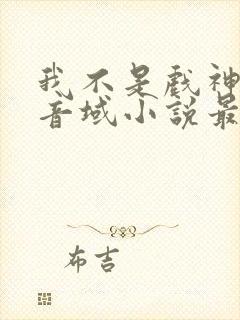 我不是戲神
音域小說最
布吉